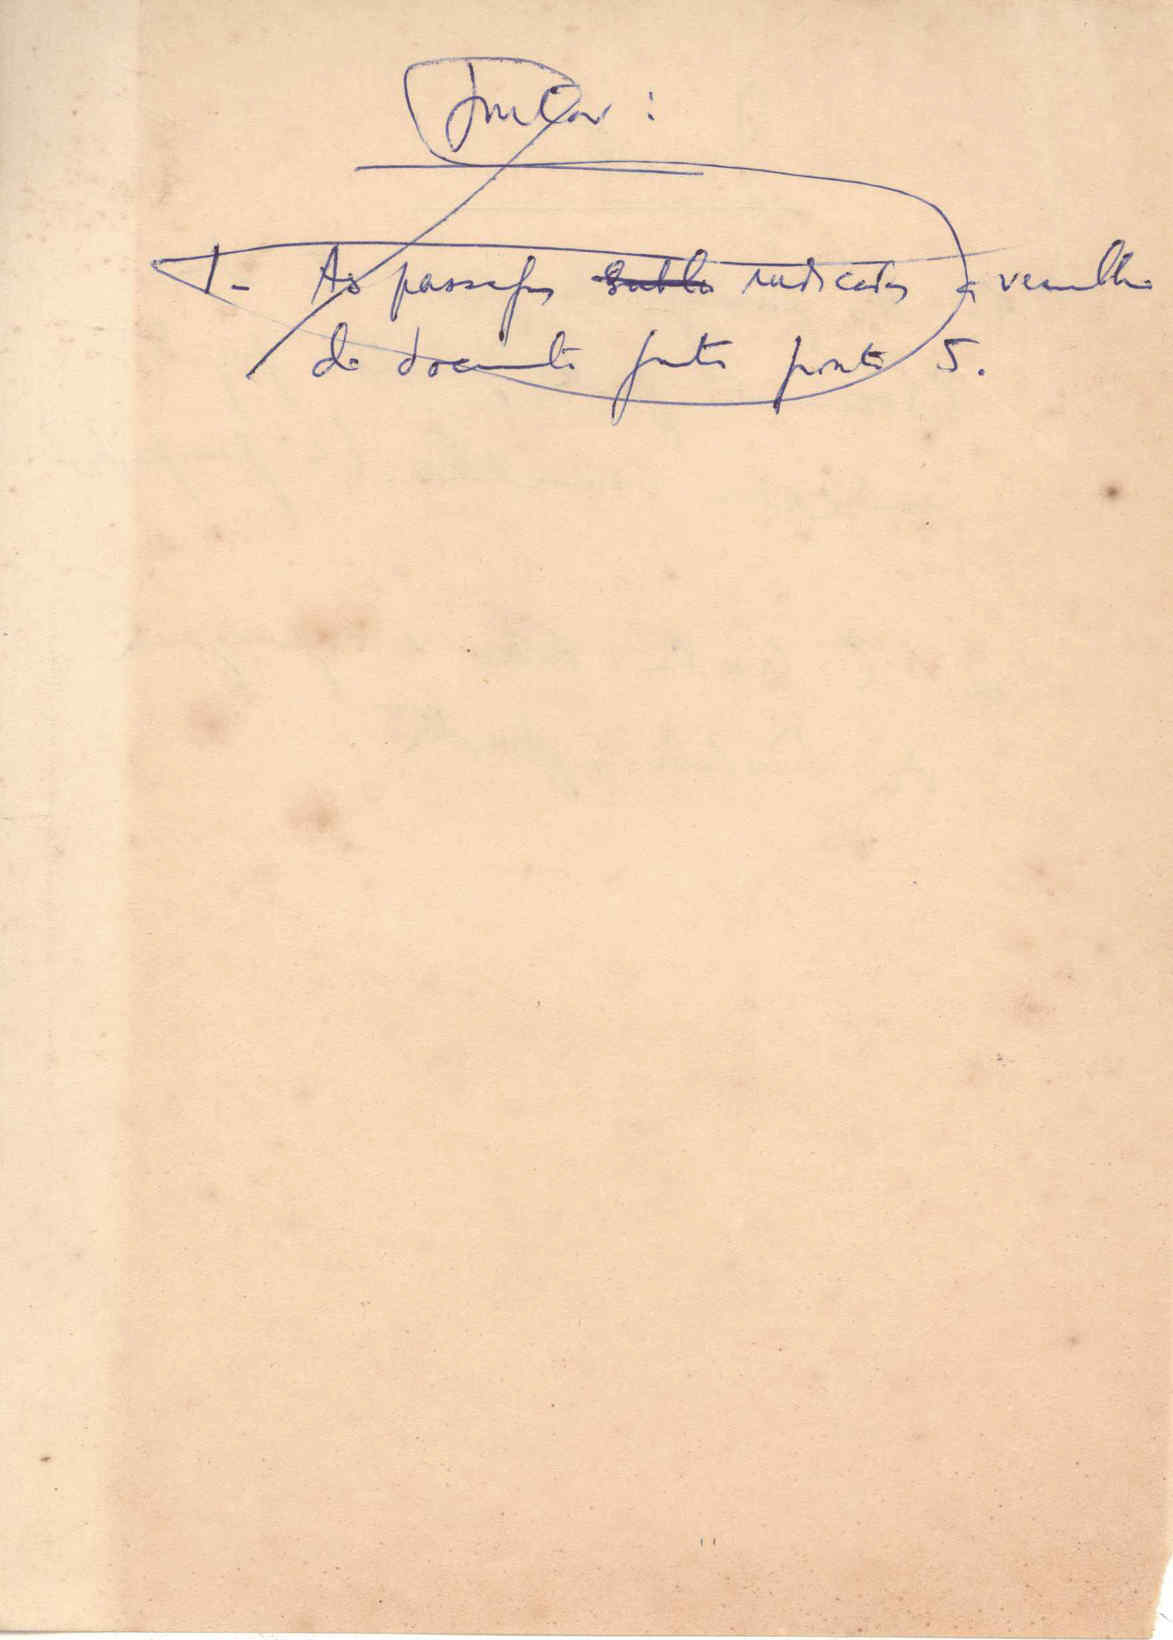 Juntar:
1- As passagens subli indicadas a vermelho
do documento junto ponto 5.